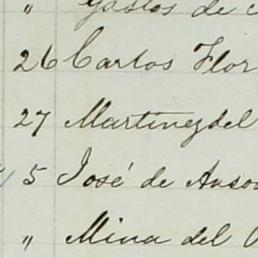 " Gastos de
26 Carlos Flor
27 Martinez del
5 José de Anso
" Mina del